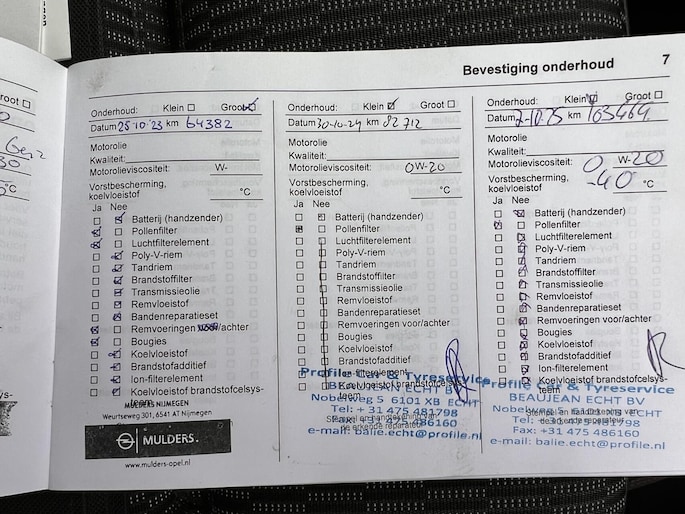 Bevestiging onderhoud 7
root ☐
°C
Onderhoud: Klein ☐ Groot ☑
Datum 25-10-23 km 64382
Motorolie
Kwaliteit:
Motorolieviscositeit: W-
Vorstbescherming,
koelvloeistof °C
Ja Nee
Batterij (handzender)
Pollenfilter
Luchtfilterelement
Poly-V-riem
Tandriem
Brandstoffilter
Transmissieolie
Remvloeistof
Bandenreparatieset
Remvoeringen voor/achter
Bougies
Koelvloeistof
Brandstofadditief
Ion-filterelement
Koelvloeistof brandstofcelsys-
teem
MULDERS NIJMEGEN
Weurtseweg 301, 6541 AT Nijmegen
MULDERS.
www.mulders-opel.nl
Onderhoud: Klein ☑ Groot ☐
Datum 30-10-24 km 82712
Motorolie
Kwaliteit:
Motorolieviscositeit: 0W-20
Vorstbescherming,
koelvloeistof °C
Ja Nee
Batterij (handzender)
Pollenfilter
Luchtfilterelement
Poly-V-riem
Tandriem
Brandstoffilter
Transmissieolie
Remvloeistof
Bandenreparatieset
Remvoeringen voor/achter
Bougies
Koelvloeistof
Brandstofadditief
Ion-filterelement
Koelvloeistof brandstofcelsys-
teem
Profile Car & Tyreservice
BEAUJEAN ECHT BV
Nobelweg 5 6101 XB ECHT
Tel: +31 475 481798
Stempel en handtekening van
de erkende reparateur
Fax: +31 475 486160
e-mail: balie.echt@profile.nl
Onderhoud: Klein ☑ Groot ☐
Datum 7-10-25 km 103464
Motorolie
Kwaliteit:
Motorolieviscositeit: 0 W-20
Vorstbescherming,
koelvloeistof -40 °C
Ja Nee
Batterij (handzender)
Pollenfilter
Luchtfilterelement
Poly-V-riem
Tandriem
Brandstoffilter
Transmissieolie
Remvloeistof
Bandenreparatieset
Remvoeringen voor/achter
Bougies
Koelvloeistof
Brandstofadditief
Ion-filterelement
Koelvloeistof brandstofcelsys-
teem
Profile Car & Tyreservice
BEAUJEAN ECHT BV
Nobelweg 5 6101 XB ECHT
Stempel en handtekening van
de erkende reparateur
Tel: +31 475 481798
Fax: +31 475 486160
e-mail: balie.echt@profile.nl